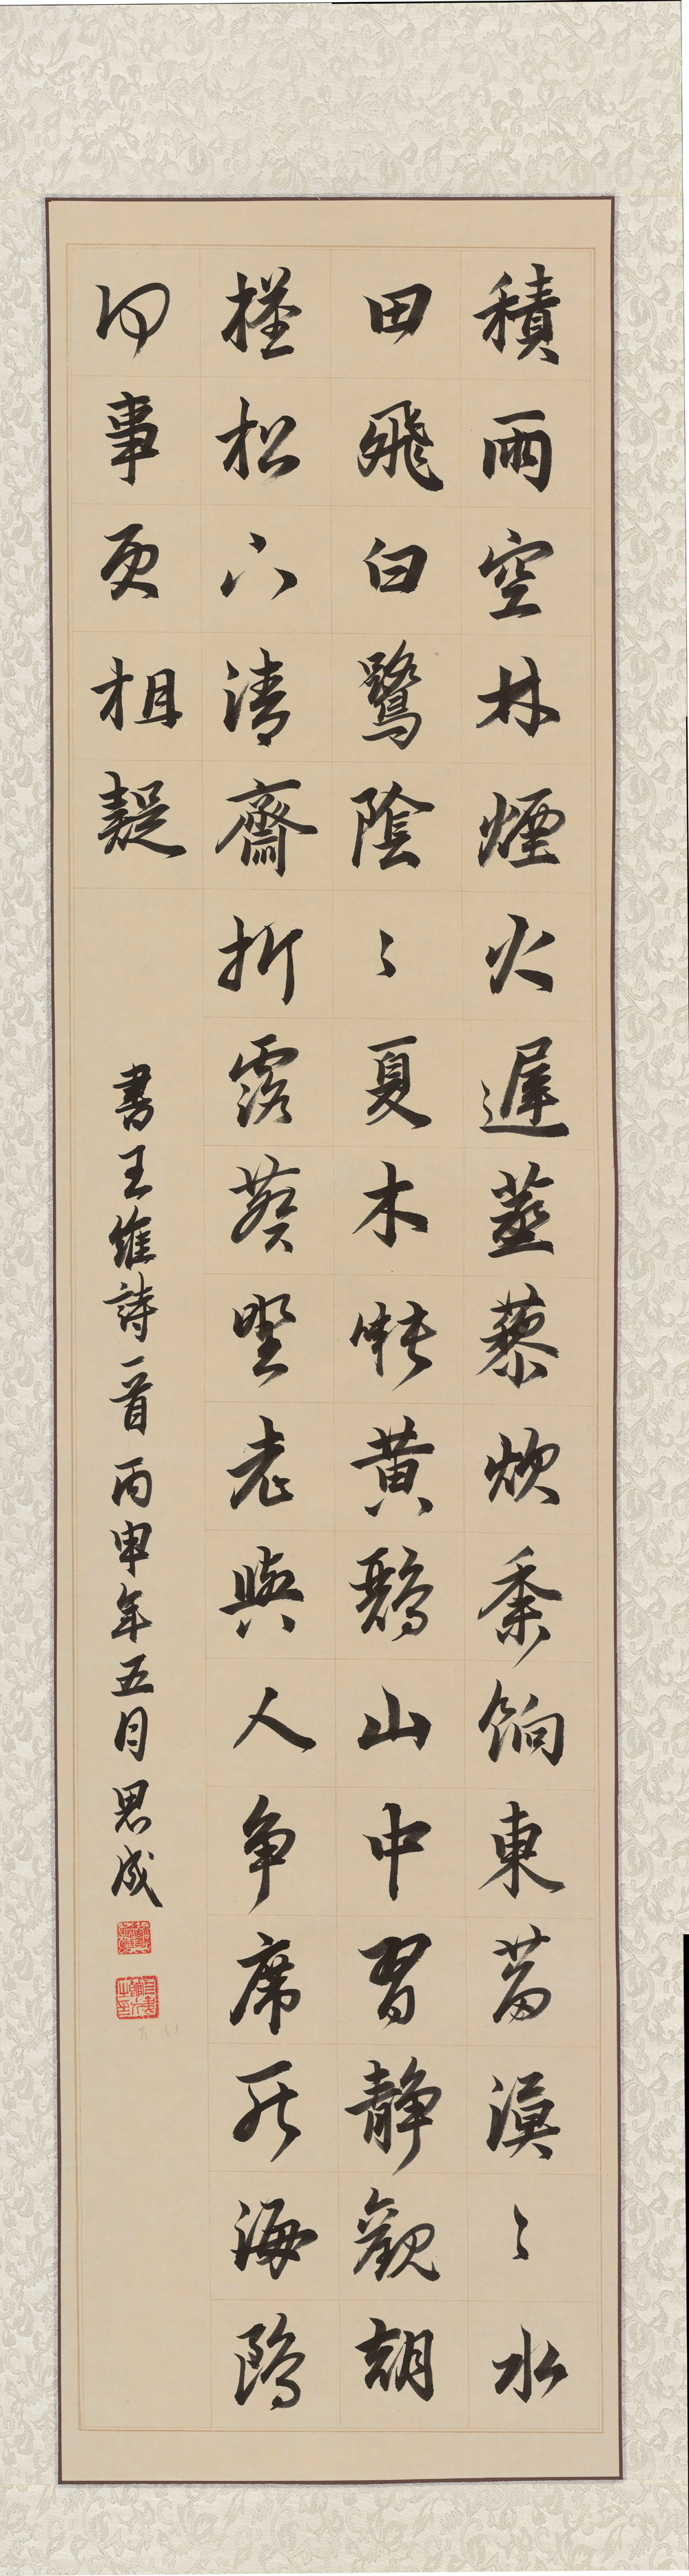 積雨空林煙火遲蒸藜炊黍餉東菑漠〻水
田飛白鷺陰〻夏木囀黃鸝山中習靜觀朝
槿松下清齋折露葵野老與人爭席罷海鷗
何事更相疑
書王維詩一首丙申年五月思成